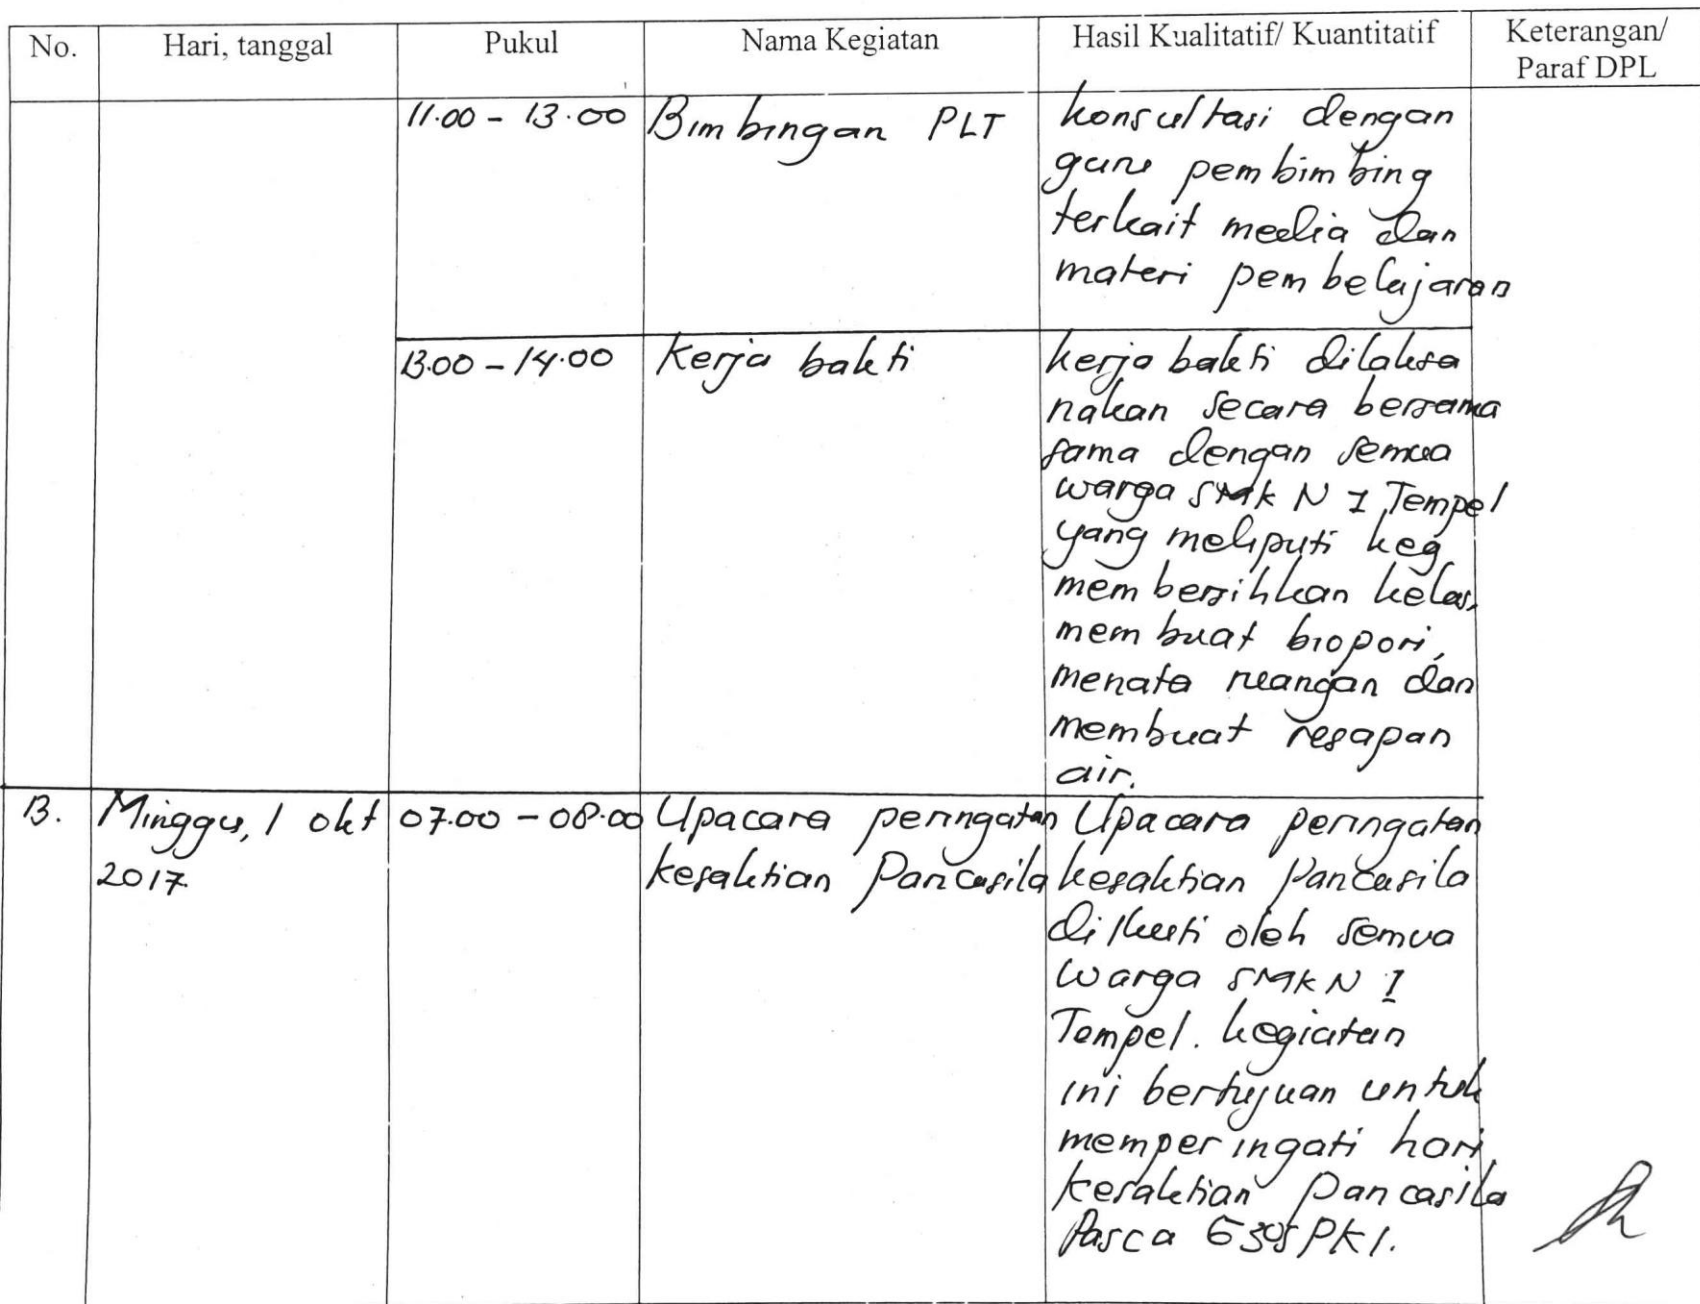 No. Hari, tanggal Pukul Nama Kegiatan Hasil Kualitatif/ Kuantitatif Keterangan/
Paraf DPL
11.00 - 13.00 Bimbingan PLT konsultasi dengan
guru pembimbing
terkait media dan
materi pembelajaran
13.00 - 14.00 Kerja bakti kerja bakti dilaksa
nakan secara bersama
sama dengan semua
warga SMK N 1 Tempel
yang meliputi keg
membersihkan kelas,
membuat biopori,
menata ruangan dan
membuat resapan
air.
13. Minggu, 1 okt 07.00 - 08.00 Upacara peringatan Upacara peringatan
2017 kesaktian Pancasila kesaktian Pancasila
diikuti oleh semua
warga SMK N 1
Tempel. kegiatan
ini bertujuan untuk
memperingati hari
kesaktian Pancasila
Pasca G30S PKI.